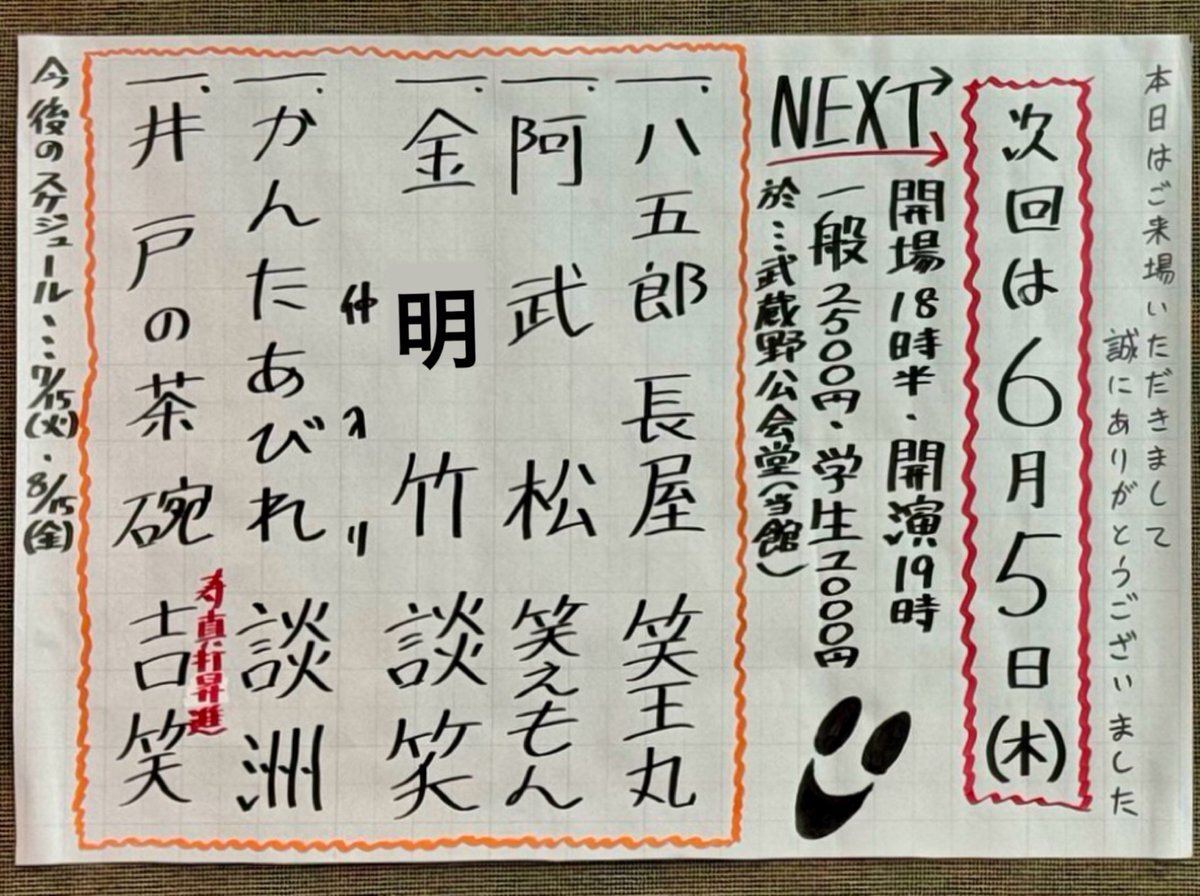 本日はご来場いただきまして
誠にありがとうございました
次回は6月5日(木)
NEXT
開場18時半・開演19時
一般2500円・学生2000円
於…武蔵野公会堂(当館)
一、八五郎長屋 笑王丸
一、阿武松 笑えもん
一、金明竹 談笑
仲入り
一、かんたあびれ 談洲
一、井戸の茶碗 吉笑
寿真打昇進
今後のスケジュール…7/15(火)・8/15(金)